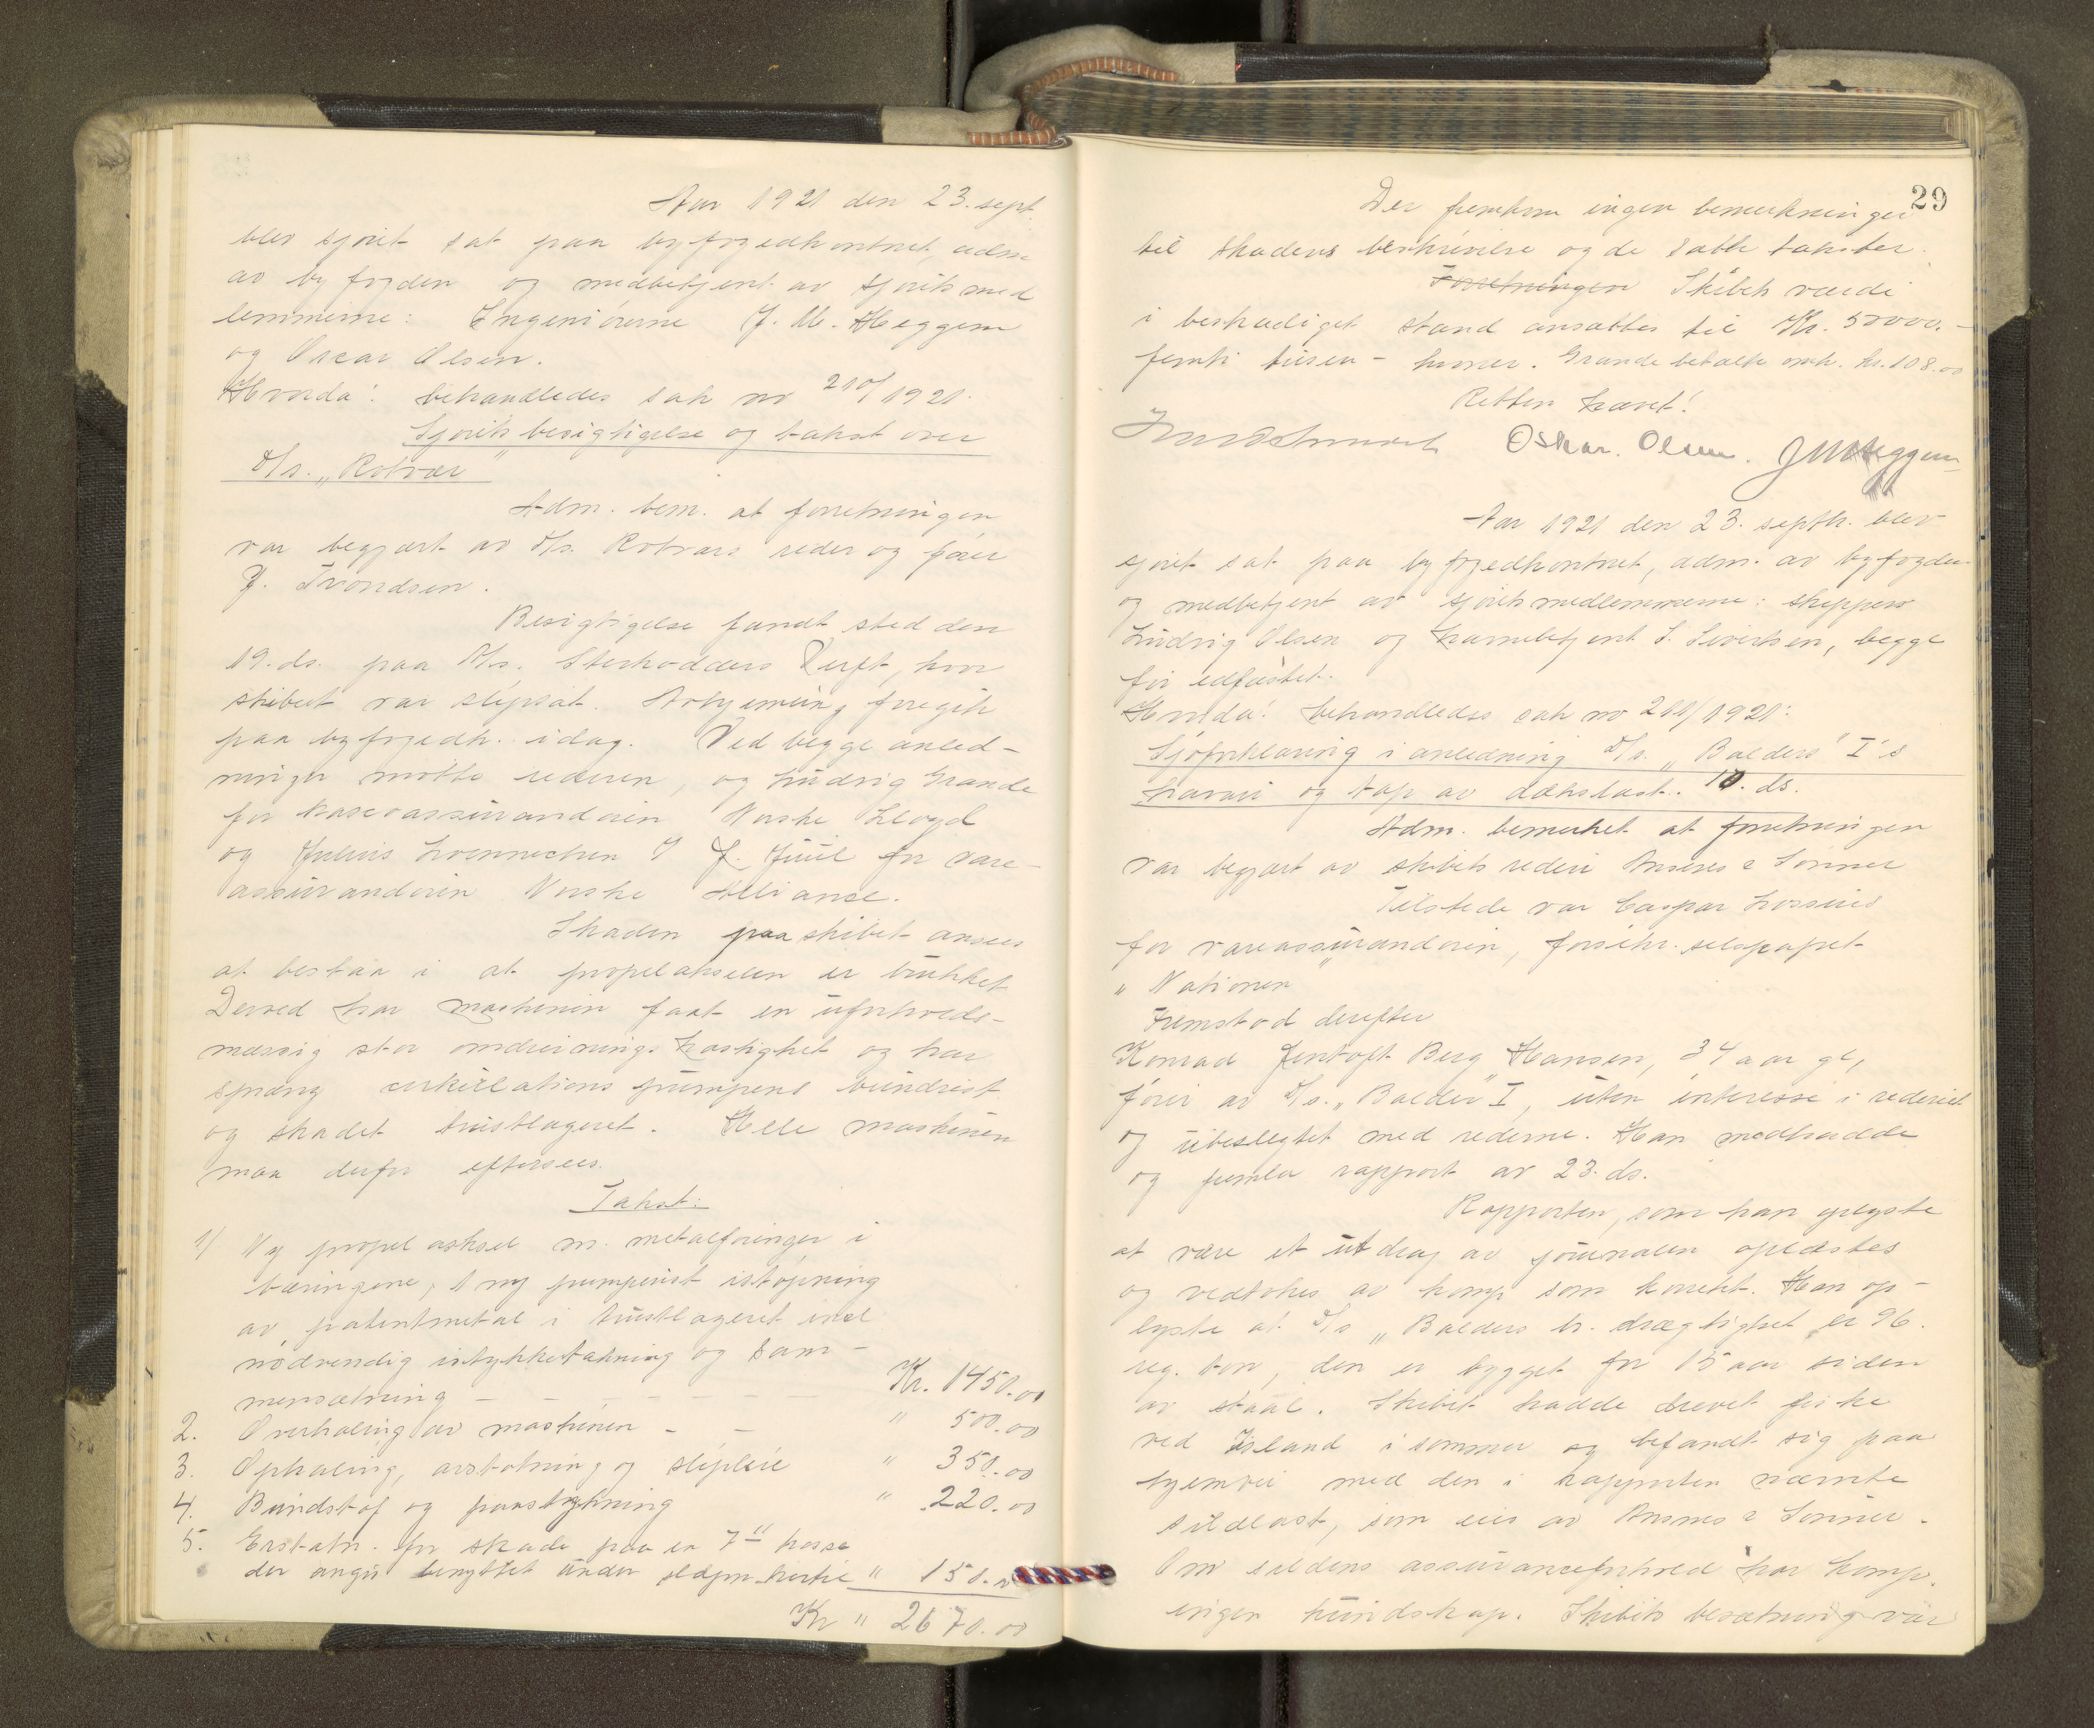 Aar 1921 den 23. sept.
blev sjøret sat paa byfogedkontoret, adm.
av byfogden og medbetjent av sjøretsmed
lemmerne: Ingeniørerne J. M. Heggem
og Oscar Olsen.
Hvorda! behandledes sak no 210/1921.
Sjørets besigtigelse og takst over
D/s. „Rotvær"
Adm. bem. at forretningen
var begjært av D/s. Rotværs reder og fører
J. Trondsen.
Besigtigelse fandt sted den
19. ds. paa Storkodders Verft, hvor
skibet var slipsat. Avhjemling foregik
paa byfogedk. idag. Ved begge anled-
ninger møtte rederen, og Ludvig Grande
for kascoassurandøren Norske Lloyd
og Julius Loennechen f J. Juul for vare-
assurandøren Norske Alliance.
Skaden paa skibet ansees
at bestaa i at propelakselen er brukket
Derved har maskinen faat en uforholds-
mæssig stor omdreinings hastighet og har
sprængt cirkulations pumpens bundrist
og skadet trustlageret. Hele maskinen
maa derfor eftersees.
Takst:
1/ Ny propel aksel m. metalforinger i
bæringene, 1 ny pumperist istøpning
av patentmetal i trustlageret incl
nødvendig istykketakning og sam-
mensætning – – – – – – Kr. 1450.00
2. Overhaling av maskinen – – " 500.00
3. Ophaling, avstøtning og slipleie " 350.00
4. Bundstof og paastrykning " 220.00
5. Erstatn. for skade paa en 7" trosse
der angiv. benyttet under " 150.00
Kr " 2670.00
29
Der fremkom ingen bemerkninger
til skadens beskrivelse og de satte takster.
Forretningen Skibets værdi
i beskadiget stand ansattes til Kr. 50000.–
femti tusen – kroner. Grande betalte omk. kr. 108.00
Retten hævet!
Oskar. Olsen. J M Heggem
Aar 1921 den 23. septbr. blev
sjøret sat paa byfogedkontoret, adm. av byfogden
og medbetjent av sjøretsmedlemmerne: skipper
Ludvig Olsen og havnebetjent S. Sivertsen, begge
før edfæstet.
Hvorda! behandledes sak no 211/1921:
Sjøforklaring i anledning D/s. „Balders" I's
havari og tap av dækslast. 10. ds.
Adm. bemerket at forretningen
var begjært av skibets rederi Ansnes & Sønner
Tilstede var Caspar Lossius
for vareassurandøren, forsikr. selskapet
„Nationen"
Fremstod derefter
Konrad Jentoft Berg Hansen, 34 aar gl,
fører av D/s. „Balder" I, uten interesse i rederiet
og ubeslegtet med rederne. Han medhadde
og fremla rapport av 23. ds.
Rapporten, som han oplyste
at være et utdrag av journalen oplæstes
og vedtokes av komp som korrekt. Han op-
lyste at D/s „Balders br. drægtighet er 96.
reg. ton, den er bygget for 15 aar siden
av staal. Skibet hadde drevet fiske
ved Island i sommer og befandt sig paa
hjemvei med den i rapporten nævnte
sildlast, som eies av Ansnes & Sønner.
Om sildens assuranceforhold har komp.
ingen kundskap. Skibets besætning var